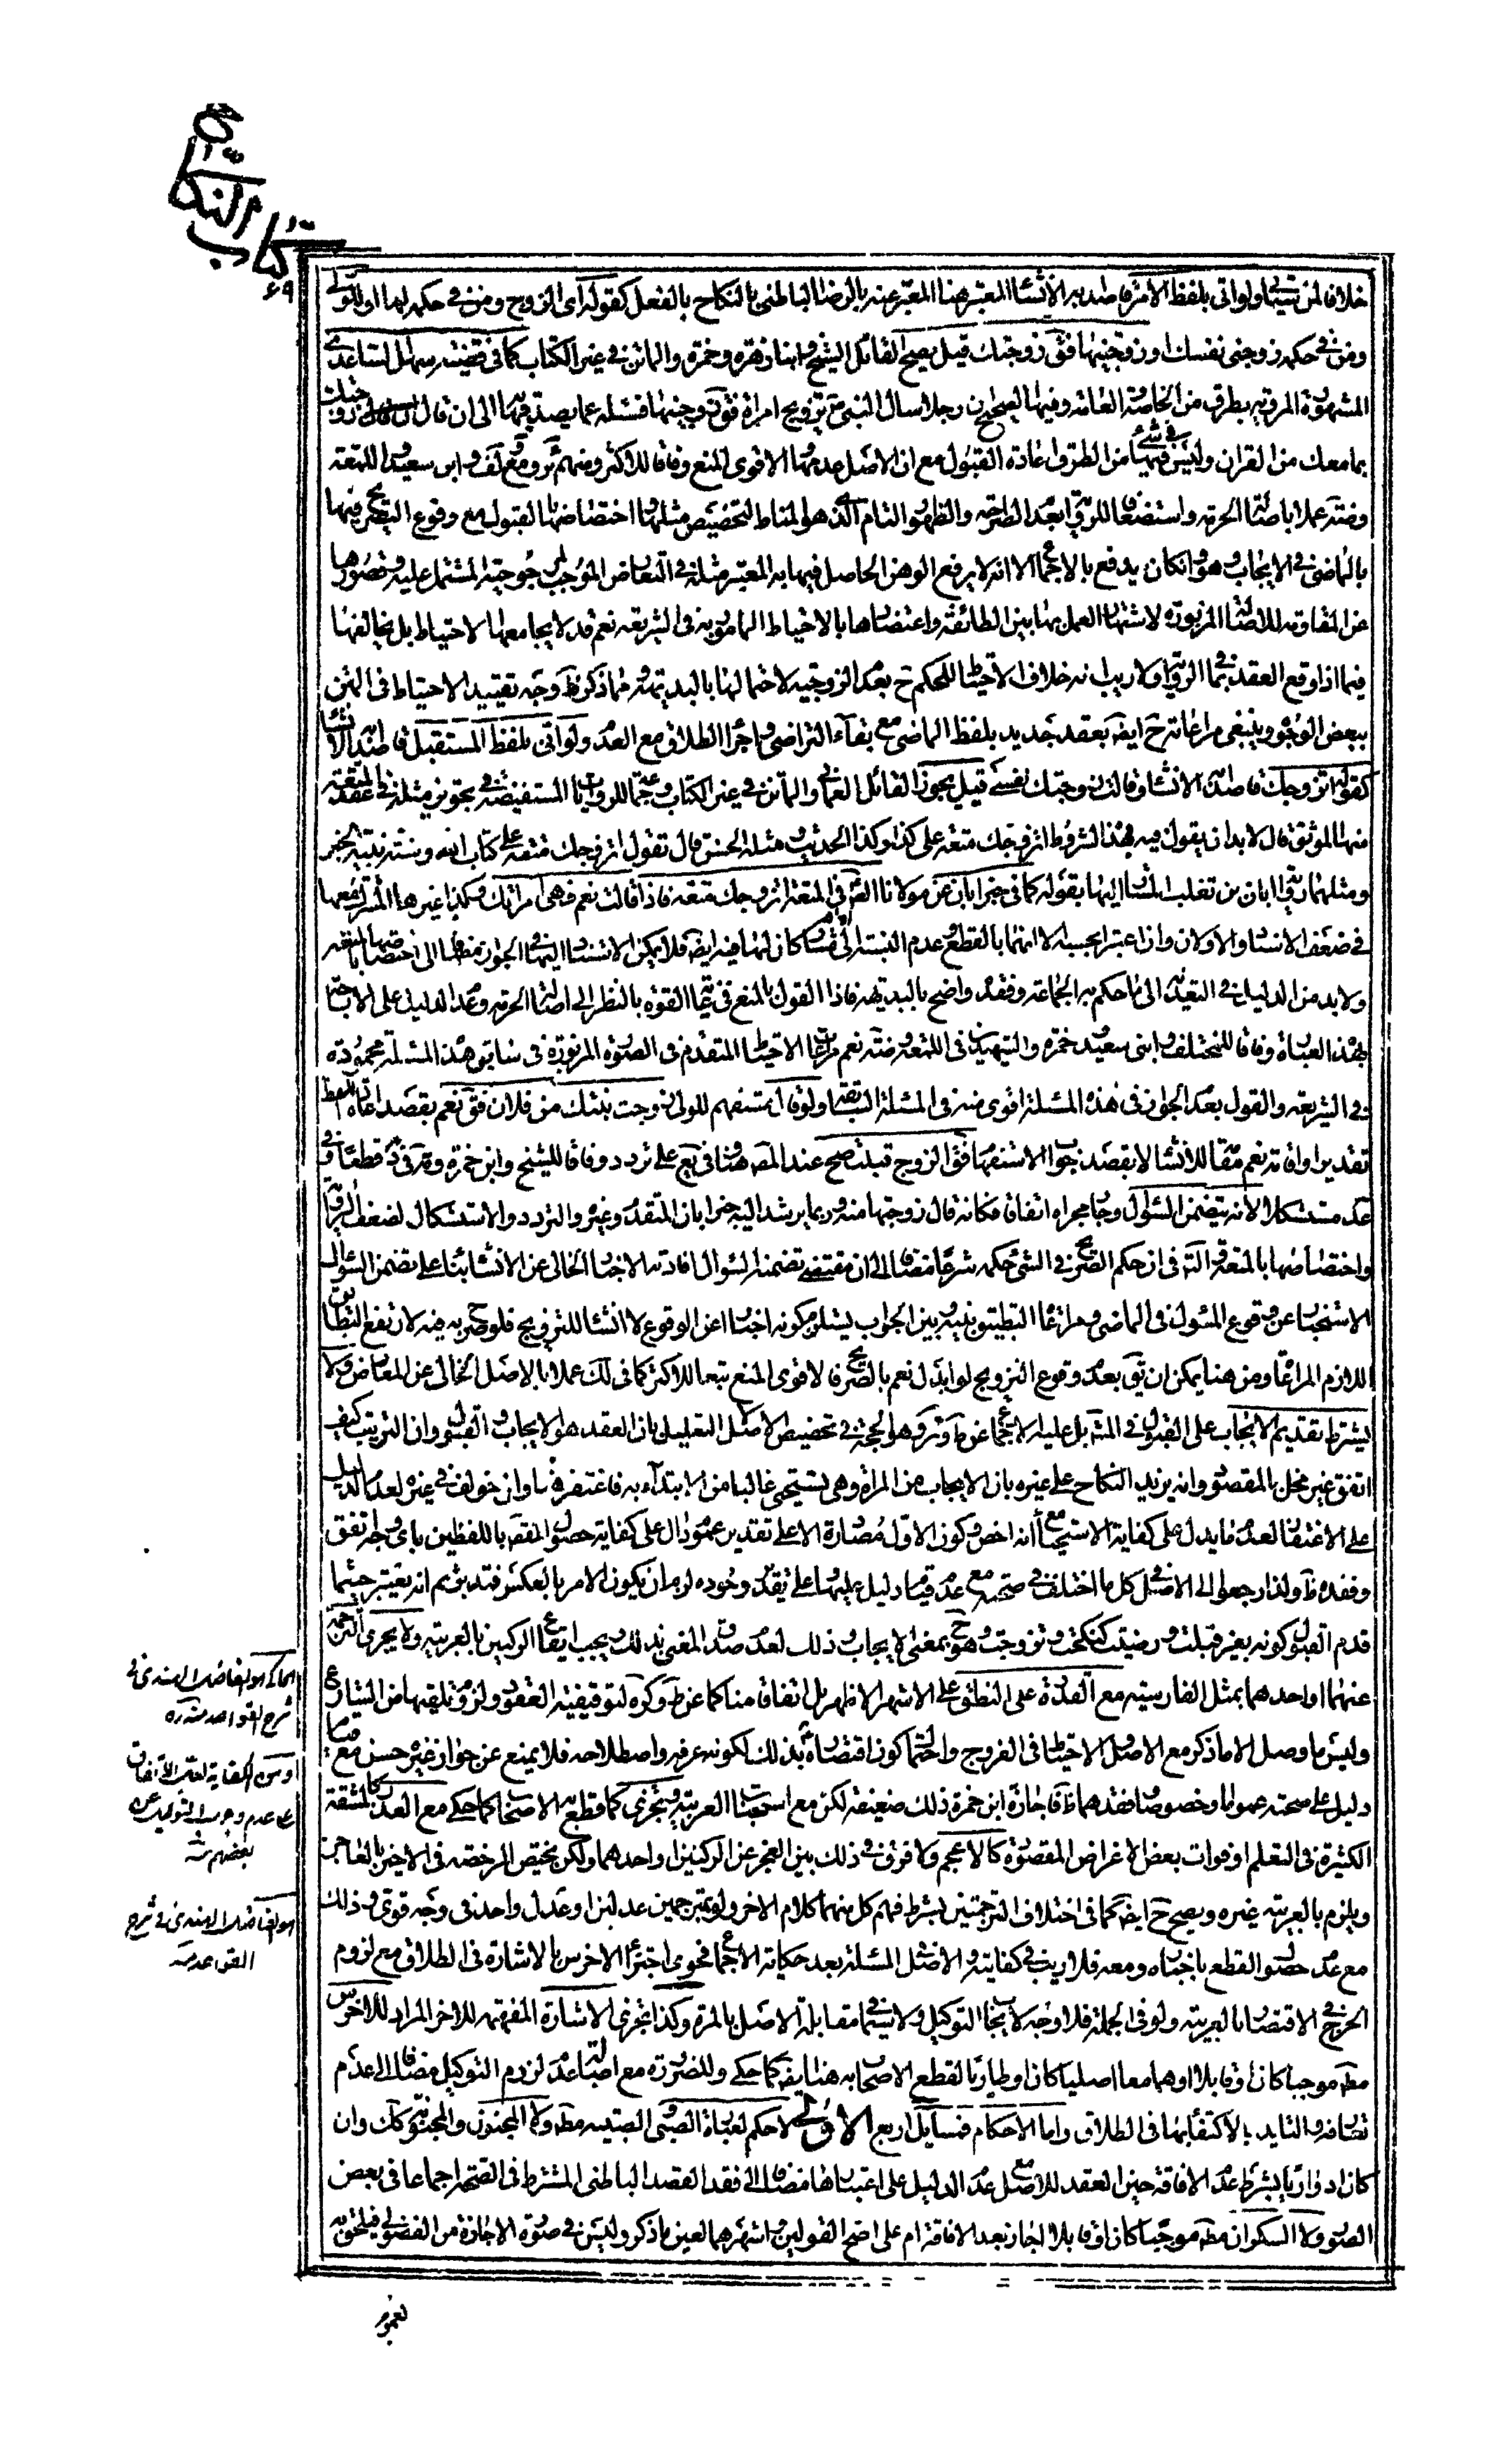 كتاب النكاح
۶۹
خلافا لمن ولو اتى بلفظ الامر قاصدا به الانشاء المعتبر هنا المعبر عنه بالرضا الباطنى بالنكاح بالفعل كقوله اى الزوج ومن فى حكمه لها او للولى
ومن فى حكمه زوجنى نفسك او زوجنيها فق زوجتك قيل يصح القائل الشيخ وابنا زهرة وحمزة والماتن فى غير الكتاب كما فى قضيته سهل الساعدى
المشهورة المروية بطرق من الخاصة والعامة وفيها الصحيح ان رجلا سال النبى ص تزويج امراة فق زوجنيها فسئله عما يصدقها الى ان قال زوجتك
بما معك من القران وليس فى شئ من الطرق اعادة القبول مع ان الاصل عدمها والاقوى المنع وفاقا للاكثر ومنهم ئر ومع ولف وابن سعيد واللمعة
وضته عملا باصالة الحرمة واستضعافا للرواية ببعد الصراحة والظهور التام الذى هو المناط لتخصيص مثلها واختصاصها بالقبول مع وقوع التصريح فيها
بالماضى فى الايجاب وهو وان كان يدفع بالاجماع الا انه لا يرفع الوهن الحاصل فيها به المعتبر مثله فى التعارض الموجب لمرجوحية المشتمل عليه وقصورها
عن المقاومة للاصالة المزبورة لاشتهار العمل بها بين الطائفة واعتضادها بالاحتياط المامور به فى الشريعة نعم قد لا يجامعها الاحتياط بل يخالفها
فيما اذا وقع العقد بما فى الرواية ولا ريب انه خلاف الاحتياط للحكم ح بعدم الزوجية لاحتمالها بالبديهة ومما ذكر ظ وجه تقييد الاحتياط فى المتن
ببعض الوجوه وينبغى مراعاته ح ايضه بعقد جديد بلفظ الماضى مع بقاء التراضى واجراء الطلاق مع العدم ولو اتى بلفظ المستقبل قاصدا الانشاء
كقوله اتزوجك قاصدا الانشاء فقالت زوجتك نفسى قيل يجوز القائل العمانى والماتن فى غير الكتاب وجماعة للروايات المستفيضة فى تجويز مثله فى عقد المتعة
منها الموثق قال لا بد ان يقول فيه هذه الشروط اتزوجك متعة على كذا وكذا الحديث ومثله الحسن قال تقول اتزوجك متعة على كتاب الله وسنة نبيه الخبر
ومثلهما رواية ابان بن تغلب المشار اليها بقوله كما فى خبر ابان عن مولانا الصادق ع فى المتعة اتزوجك متعة فاذا قالت نعم فهى امراتك وكذا غيرها المشترك معها
فى ضعف الاسناد والاولان وان اعتبرا بحسبه الا انهما بالقطع وعدم النسبة الى الامام كان لهما فيه ايضه فلا يمكن الاستناد اليهما فى الجواز مضافا الى اختصاصهما بالمتعة
ولا بد من الدليل فى التعدية الى ما حكم به الجماعة وفقده واضح بالبديهة فاذا القول بالمنع فى غاية القوة بالنظر الى اصالة الحرمة وعدم الدليل على الاباحة
بهذه العبارة وفاقا للمختلف وابنى سعيد وحمزة والشهيدين فى اللمعة وضته نعم مراعاة الاحتياط المتقدم فى الصورة المزبورة فى سابق هذه المسئلة محمودة
فى الشريعة والقول بعدم الجواز فى هذه المسئلة اقوى منه فى المسئلة السابقة ولو قال مستفهم للولى زوجت بنتك من فلان فق نعم بقصد اعادة اللفظ
تقديرا واقامة نعم مقامه للانشاء لا بقصد جواب الاستفهام فق الزوج قبلت صح عند المصه هنا وفى يع على تردد وفاقا للشيخ وابن حمزة وقطعا وفى
عد مستشكلا لانه يتضمن السؤال وجار مجراه اتفاقا فكانه قال زوجتها منه وربما يرشد اليه خبر ابان المتقدم وغيره والتردد والاستشكال لضعف الرواية
واختصاصها بالمتعة والتامل فى ان حكم الصريح فى الشئ حكمه شرعا مضافا الى ان مقتضى تضمنه السؤال افادته الاخبار الخالى عن الانشاء بناء على تضمن السؤال
الاستخبار عن وقوع المسئول فى الماضى ومراعاة التطبيق بينه وبين الجواب يستلزم كونه اخبارا عن الوقوع لا انشاء للتزويج فلو صرح به فيه لارتفع التطابق
اللازم المراعاة ومن هنا يمكن ان يق بعدم وقوع التزويج لو ابدل نعم بالصريح فالاقوى المنع تبعا للاكثر كما فى لك عملا بالاصل الخالى عن المعارض ولا
يشترط تقديم الايجاب على القبول فى المشهور بل عليه الاجماع عن ط وئر وهو الحجة فى تخصيص الاصل لا التعليل بان العقد هو الايجاب والقبول وان الترتيب كيف
اتفق غير مخل بالمقصود وانه يزيد النكاح على غيره بان الايجاب من المراة وهى تستحيى غالبا من الابتداء به فاغتفر هنا وان خولف فى غيره لعدم الدليل
على الاغتفار لعدم ما يدل على كفاية الاستحياء مع انه اخص وكون الاول مصادرة الا على تقدير عموم دال على كفاية حصول المقصود باللفظين باى وجه اتفق
وفقده ظ ولذا رجعوا الى الاصل فى كل ما اختلف فى صحته مع عدم قيام دليل عليها وعلى تقدير وجوده لزم ان يكون الامر بالعكس فتدبر ثم انه يعتبر حيثما
قدم القبول كونه بغير قبلت ورضيت كنكحت وتزوجت وهو ح بمعنى الايجاب وذلك لعدم صدق المعنى بذلك ويجب ايقاع الركنين بالعربية ولا يجزى الترجمة
عنهما او احدهما بمثل الفارسية مع القدرة على النطق على الاشهر الاظهر بل اتفاقا منا كما عن ط وكره لتوقيفية العقود ولزوم تلقيها من الشارع
وليس ما وصل الا ما ذكر مع الاصل والاحتياط فى الفروج واحتمال كون اقتصاره بذلك لكونه عرفه واصطلاحه فلا يمنع عن جواز غيره حسن مع قيام
دليل على صحته عموما وخصوصا وفقدهما ظ فاجازة ابن حمزة ذلك ضعيفة لكن مع استحباب العربية ويجزى كما قطع به الاصحاب كما حكى مع العذر كالمشقة
الكثيرة فى التعلم او فوات بعض الاغراض المقصودة كالاعجم ولا فرق فى ذلك بين العجز عن الركنين او احدهما ولكن يختص الرخصة فى الاخير بالعاجز
ويلزم بالعربية غيره ويصح ح ايضه كما فى اختلاف الترجمتين بشرط فهم كل منهما كلام الاخر ولو بمترجمين عدلين او عدل واحد فى وجه قوى وذلك
مع عدم حصول القطع باخباره ومعه فلا ريب فى كفايته والاصل فى المسئلة بعد حكاية الاجماع فحوى اجتزاء الاخرس بالاشارة فى الطلاق مع لزوم
الحرج فى الاقتصار بالعربية ولو فى الجملة فلا وجه لايجاب التوكيل ولا سيما فى مقابلة الاصل بالمرة وكذا تجزى الاشارة المفهمة للاخر المراد للاخرس
مطه موجبا كان او قابلا او هما معا اصليا كان او طاريا لقطع الاصحاب به هنا ايضه كما حكى وللضرورة مع اصالة عدم لزوم التوكيل مضافا الى عدم
تصافره والتاييد بالاكتفاء بها فى الطلاق واما الاحكام فمسايل اربع الاولى لا حكم لعبارة الصبى والصبية مطه ولا المجنون والمجنونة كك وان
كان ادواريا بشرط عدم الافاقة حين العقد للاصل مع عدم الدليل على اعتبارها مضافا الى فقد القصد الباطنى المشترط فى الصحة اجماعا فى بعض
الصور ولا السكران مطه موجبا كان او قابلا اجاز بعد الافاقة ام على اصح القولين واشهرهما لعين ما ذكر وليس فى صورة الاجازة من الفضولى فيلحقه
لعموم
الحاكى هو الفاضل الهندى فى
شرح القواعد منه ره
بعضهم منه
هو الفاضل الهندى فى شرح
القواعد منه